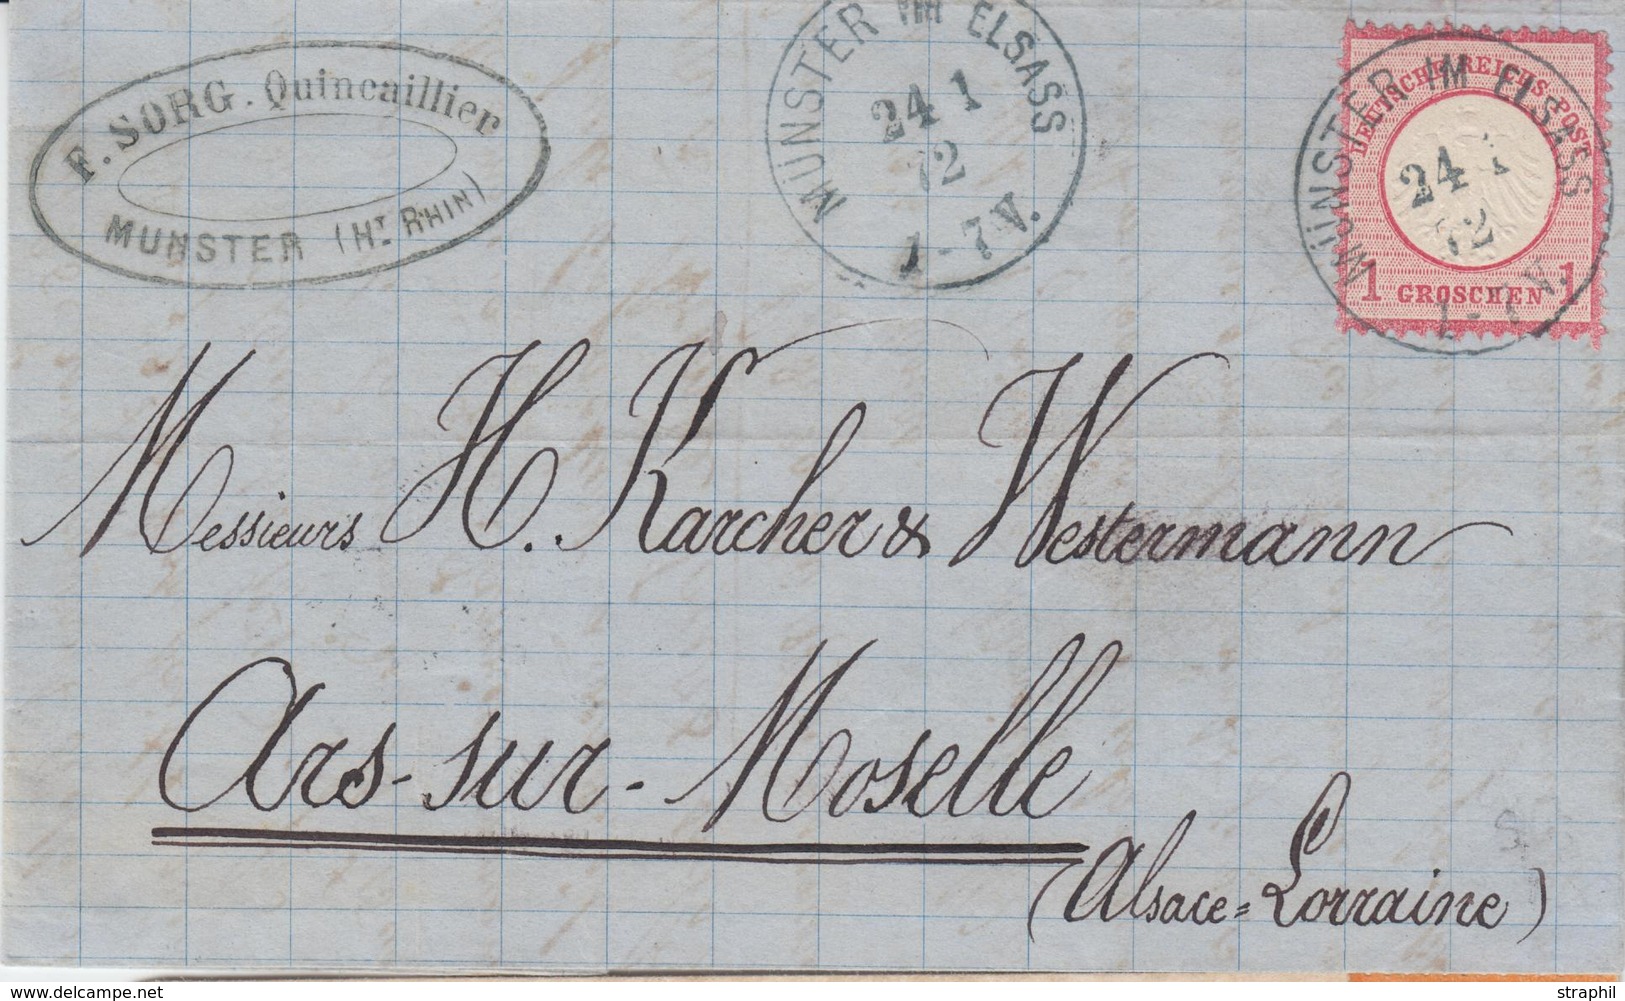 F. SORG. Quincaillier
MUNSTER (HT RHIN)
MÜNSTER IM ELSASS
24 1
72
1-7 V.
DEUTSCHE REICHS-POST
1 GROSCHEN 1
MÜNSTER IM ELSASS
24 1
72
1-7 V.
Messieurs H. Karcher & Westermann
Ars-sur-Moselle
(Alsace=Lorraine)
delcampe.net
straphil